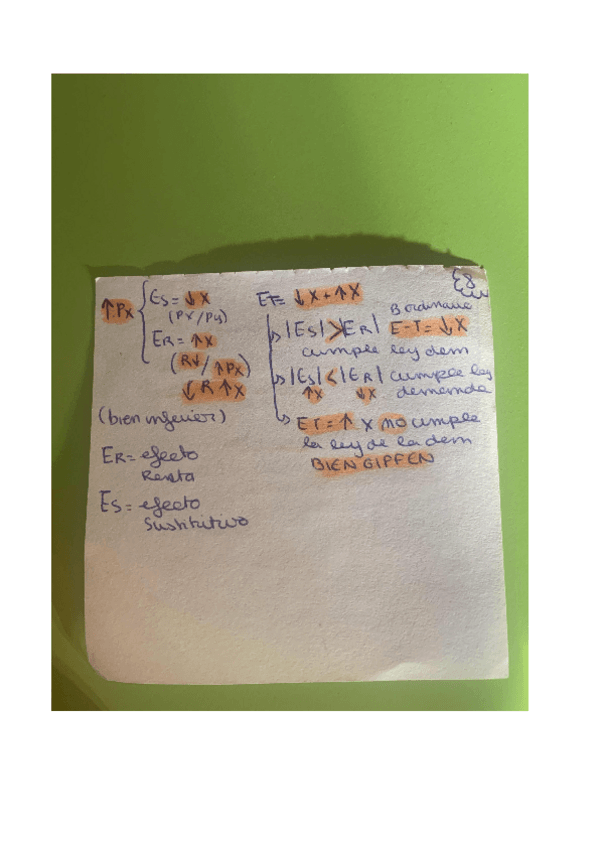 ↑Px { Es = ↓X
(Px/Py)
ER = ↑X
(R↓/↑Px)
↓R ↑X
(bien inferior)
ER = efecto
Renta
Es = efecto
Sustitutivo
ET = ↓X + ↑X
B ordinario
|Es| > |ER| E-T = ↓X
cumple ley dem
|Es| < |ER| cumple ley
↑X ↓X demanda
ET = ↑ X no cumple
la ley de la dem
BIEN GIFFEN